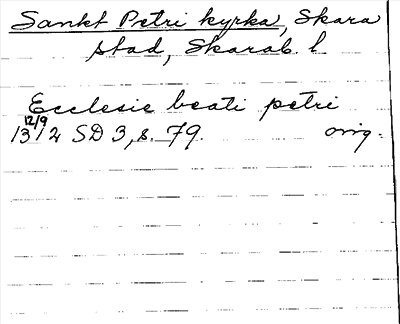 Sankt Petri kyrka, Skara
stad, Skarab. l
Ecclesie beati petri
12/9
1312 SD 3, s. 79. orig.